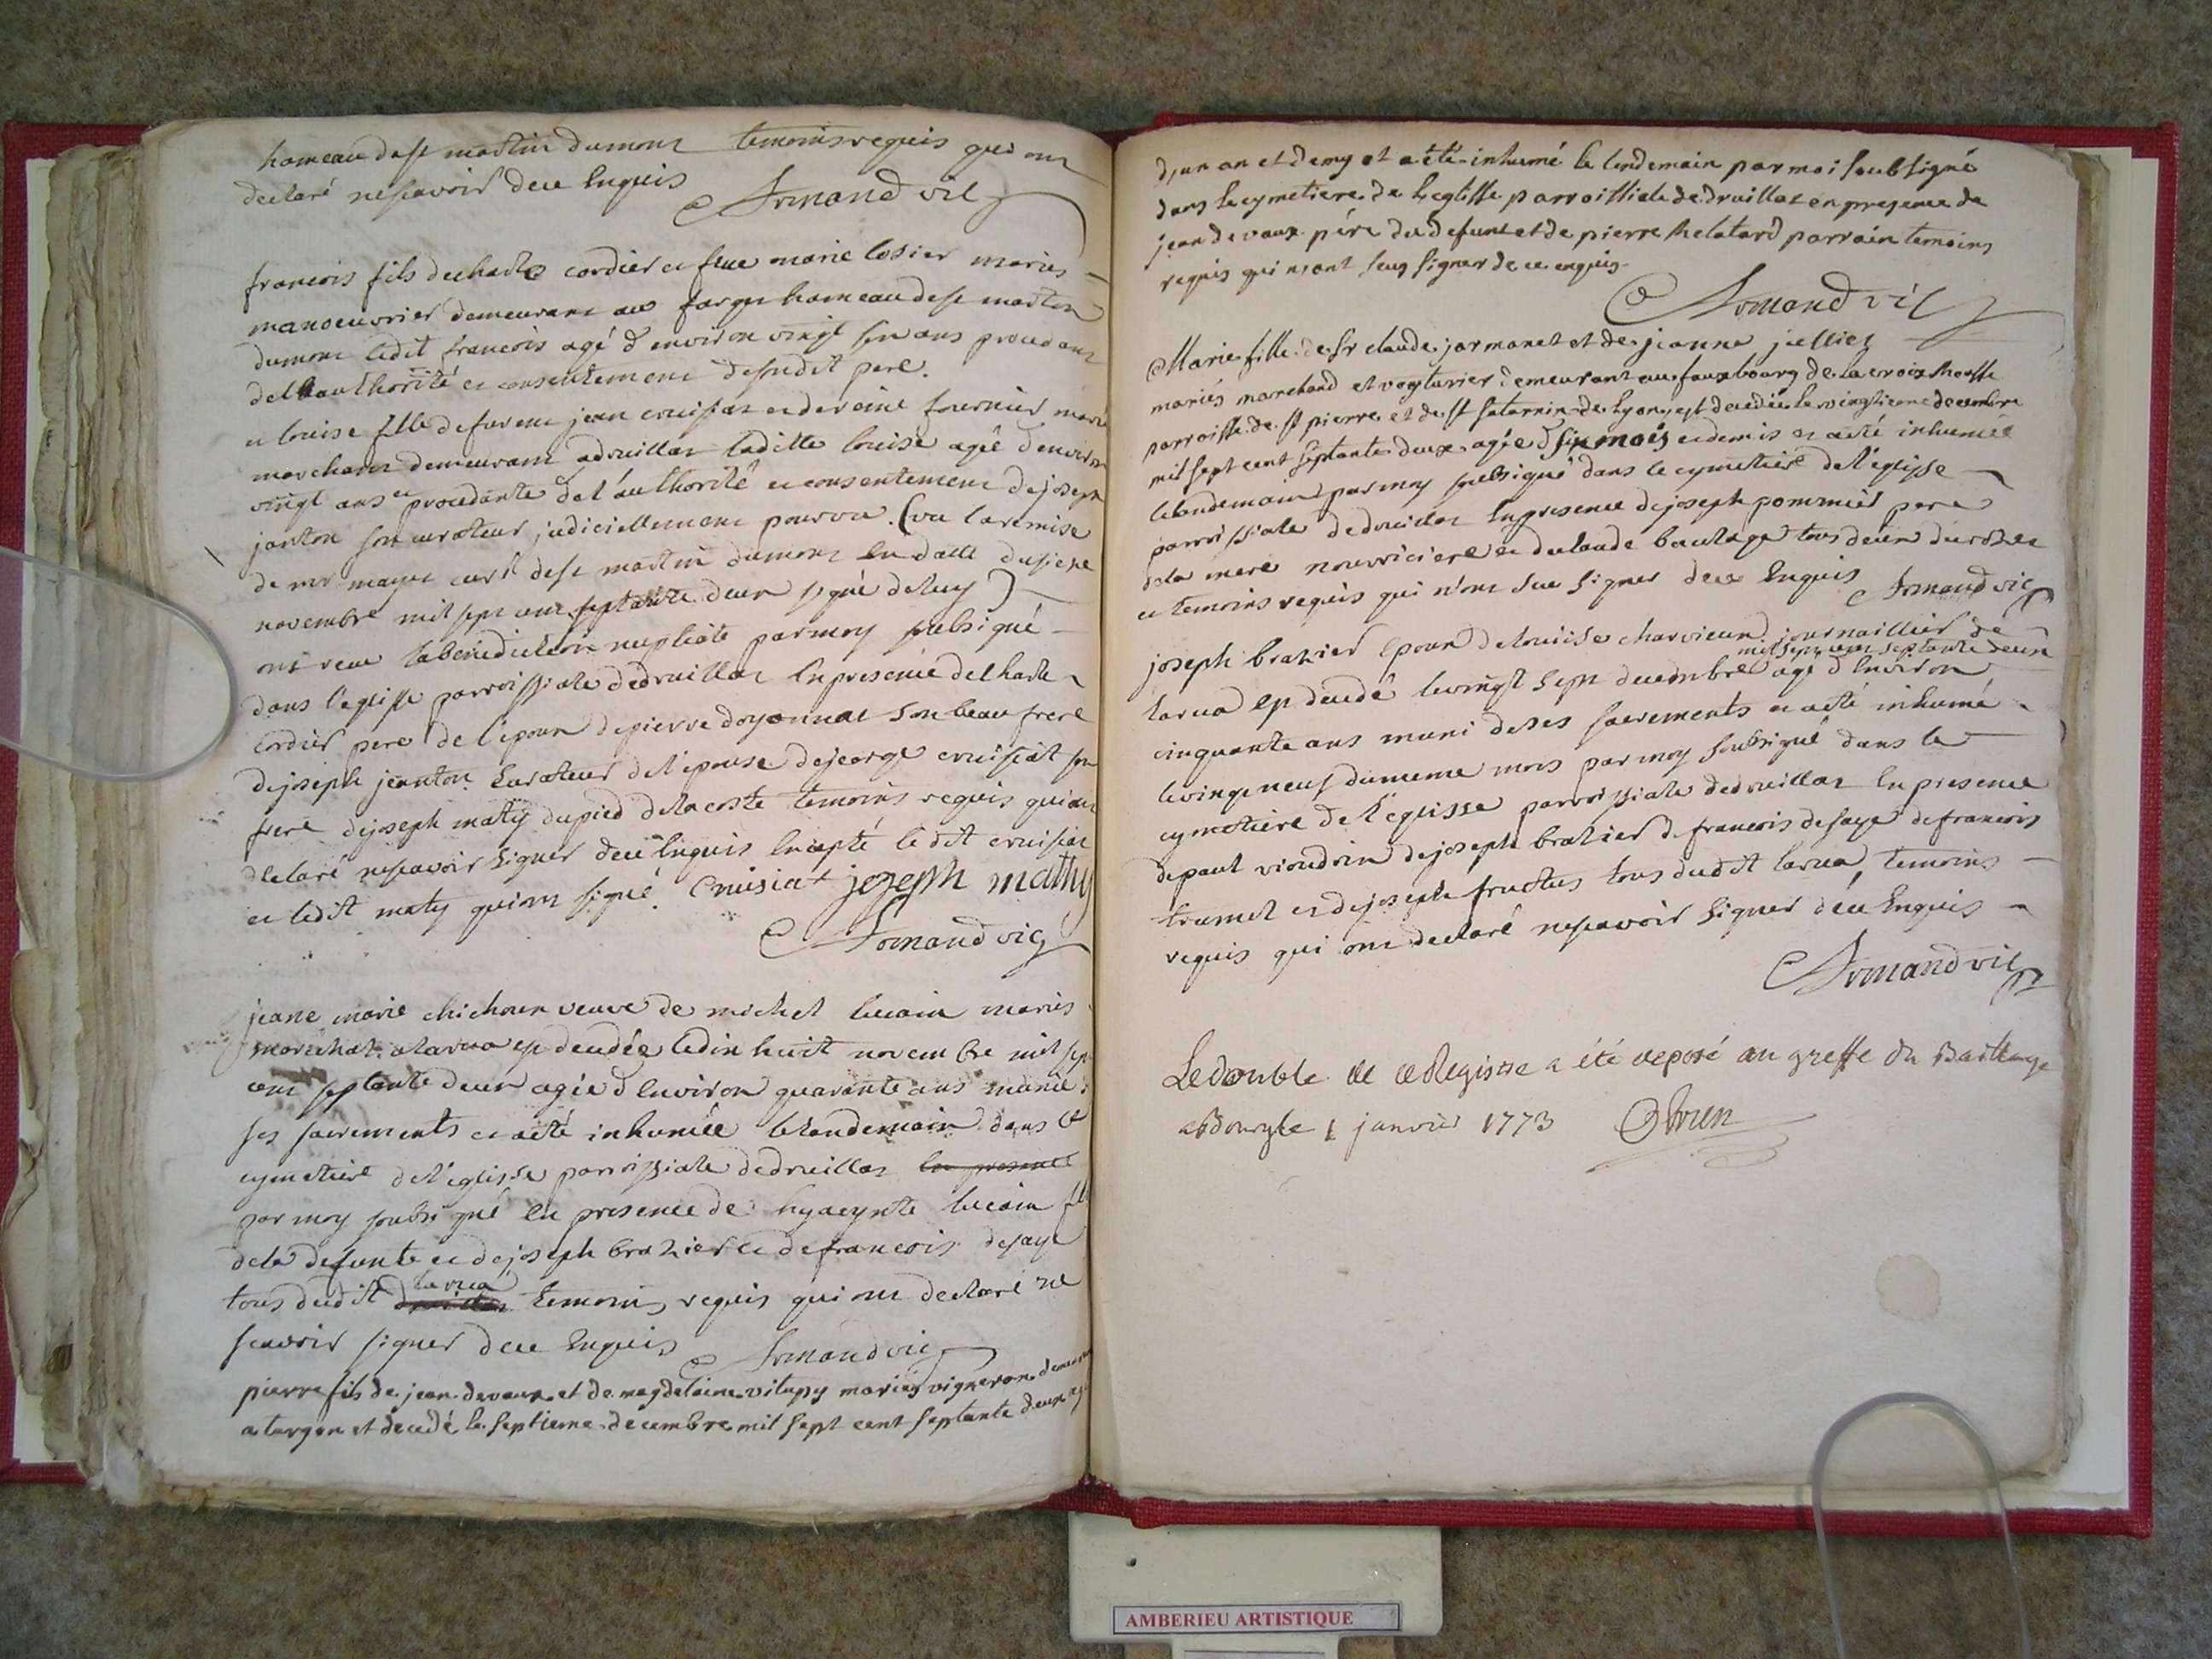 hameau de st martin dumont temoins requis qui ont
declaré nescavoir de ce Enquis Armand vic
francois fils de charle cordier et feue marie losier mariés
manoeuvrier demeurant au farges hameau de st martin
dumont ledit francois agé d'environ vingt sept ans procedant
de l'authorité et consentement de sudit pere.
et louise fille de furent jean cruisiat et de reine fournier mariés
marchands demeurant a druillat laditte louise agée d'environ
vingt ans et procedante de l'authorité et consentement de joseph
janton son curateur judiciellement pourvu. (vu la remise
de mr mayer curé de st martin dumont en datte du sixere
novembre mil sept cent septante deux signé de luy)
ont recu la benediction nuptiale par moy soubsigné
dans l'eglise parroissiale de druillat En presence de charle
cordier pere de l'epoux de pierre doyonnat son beau frere
de joseph jeanton Curateur de l'epouse de jeorge cruisiat son
frere de joseph maty du pied de la coste temoins requis qui ont
declaré nescavoir signer de ce Enquis Excepté le dit cruisiat
et ledit maty qui ont signé. Cruisiat jozeph mathy
Armand vic
jeane marie chichoux veuve de michel lucain mariés
marechal a larua est decedée le dix huit novembre mil sept
cent septante deux agée d'Environ quarante ans munie
ses sacrements et a eté inhumée le landemain dans le
cymetiere de l'eglisse parroissiale de druillat en presence
par moy soubsigné en presence de hyacynte lucain fils
de la defunte et de joseph brazier et de francois desaye
tous dudit larua temoins requis qui ont declaré ne
scavoir signer de ce Enquis Armand vic
pierre fils de jean devaux et de magdelaine vitupy mariés vigneron demeurant
a turgon et décedé le septieme decembre mil sept cent septante deux agé
d'un an et demy et a été inhumé le lendemain par moi soubsigné
dans le cymetiere de l'eglisse parroissiale de druillat en presence de
jean devaux pére du defunt et de pierre chelatard parrain temoins
requis qui n'ont seus signer de ce enquis
Armand vic
Marie fille de sr claude jarmanet et de jeanne jullien
mariés marchand et voyturier demeurant au fauxbourg de la croix Rousse
parroisse de st pierre et de st saturnin de Lyon, est decedée le vingtieme decembre
mil sept cent septante deux agée d six mois et demis et a eté inhumée
le landemain par moy soubsigné dans le cymetiere de l'eglisse
parroissiale de druillat En presence de joseph pommier pere
de la mere nourriciere et de claude baulage tous deux
et temoins requis qui n'ont sue signer de ce Enquis Armand vic
joseph brazier epoux de louise charvieux journaillier de
mil sept cent septante deux
larua est decedé le vingt sept decembre agé d'Environ
cinquante ans muni de ses sacrements et a eté inhumé
le vingt neuf du meme mois par moy soubsigné dans le
cymetiere de l'eglisse parroissiale de druillat En presence
de paul vioudrin de joseph brazier de francois desaye de francois
tramet et de joseph fructus tous dudit larua, temoins
requis qui ont declaré nescavoir signer de ce Enquis
Armand vic
Le double de ce Registre a été deposé au greffe du Bailliage
a Bourg le 1 janvier 1773
AMBERIEU ARTISTIQUE